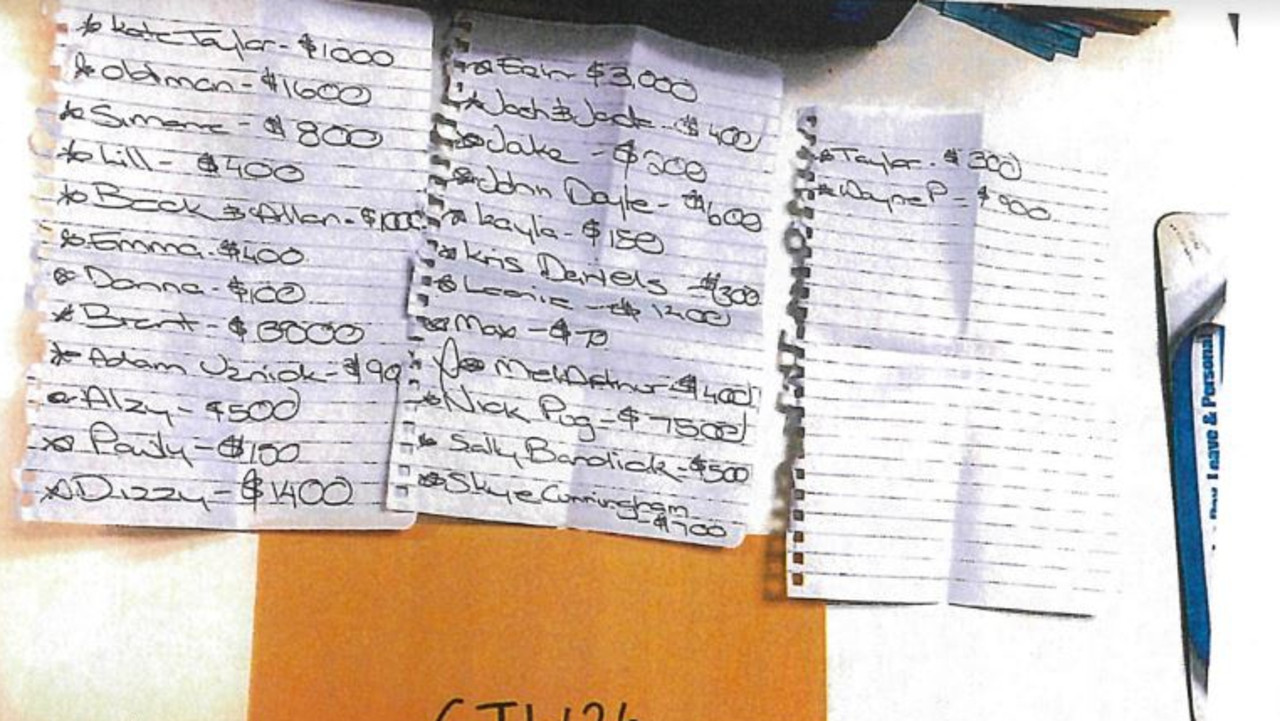 * Kate Taylor - $1000
* oldman - $1600
* Simone - $800
* Lill - $400
* Beck & Allan - $100
* Emma - $400
* Donna - $100
* Brent - $3000
* Adam Uznick - $90
* Alzy - $500
* Pauly - $150
* Dizzy - $1400
* Erin $3,000
* Josh & Jade - $400
* Jake - $500
* John Doyle - $600
* Kayla - $150
* Kris Daniels $300
* Leonie - $1200
* Max - $70
* Mel Arthur - $400
* Nick Pug - $7500
* Sally Bandick - $500
* Skye Cunningham
- $700
* Taylor - $300
* Wayne P - $900
Leave & Personal